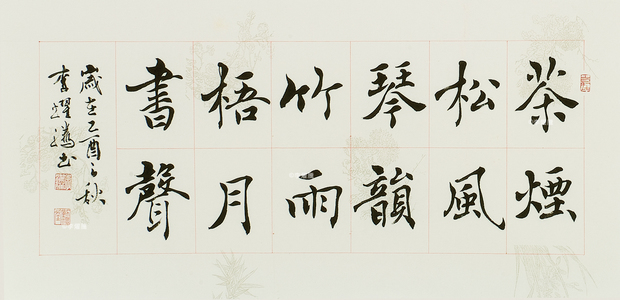 茶煙
松風
琴韻
竹雨
梧月
書聲
歲在乙酉之秋
李躍騰書